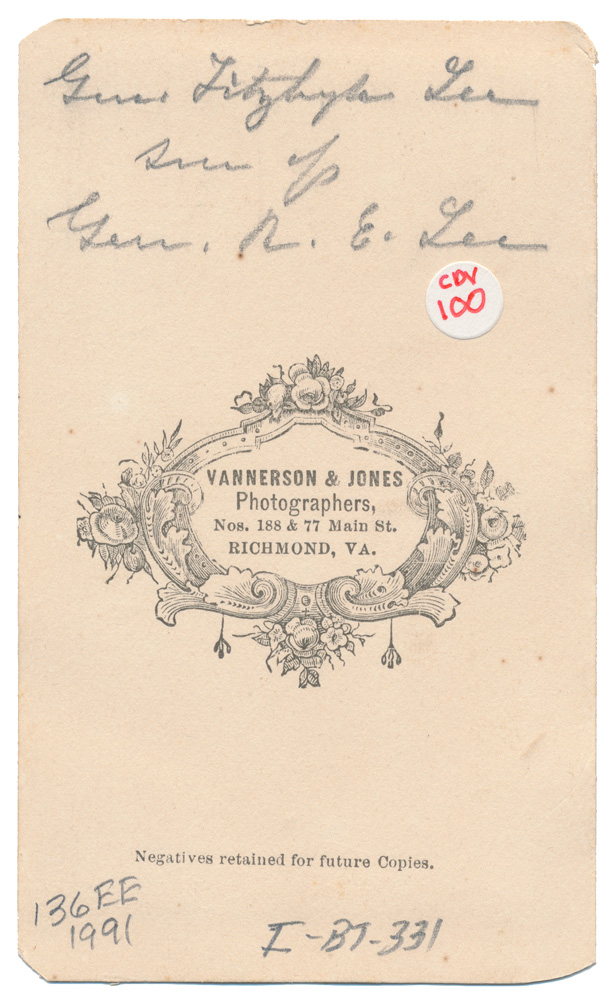 Gen. Fitzhugh Lee
son of
Gen. R. E. Lee
CDV
100
VANNERSON & JONES
Photographers,
Nos. 188 & 77 Main St.
RICHMOND, VA.
Negatives retained for future Copies.
136EE
1991
I-BT-331